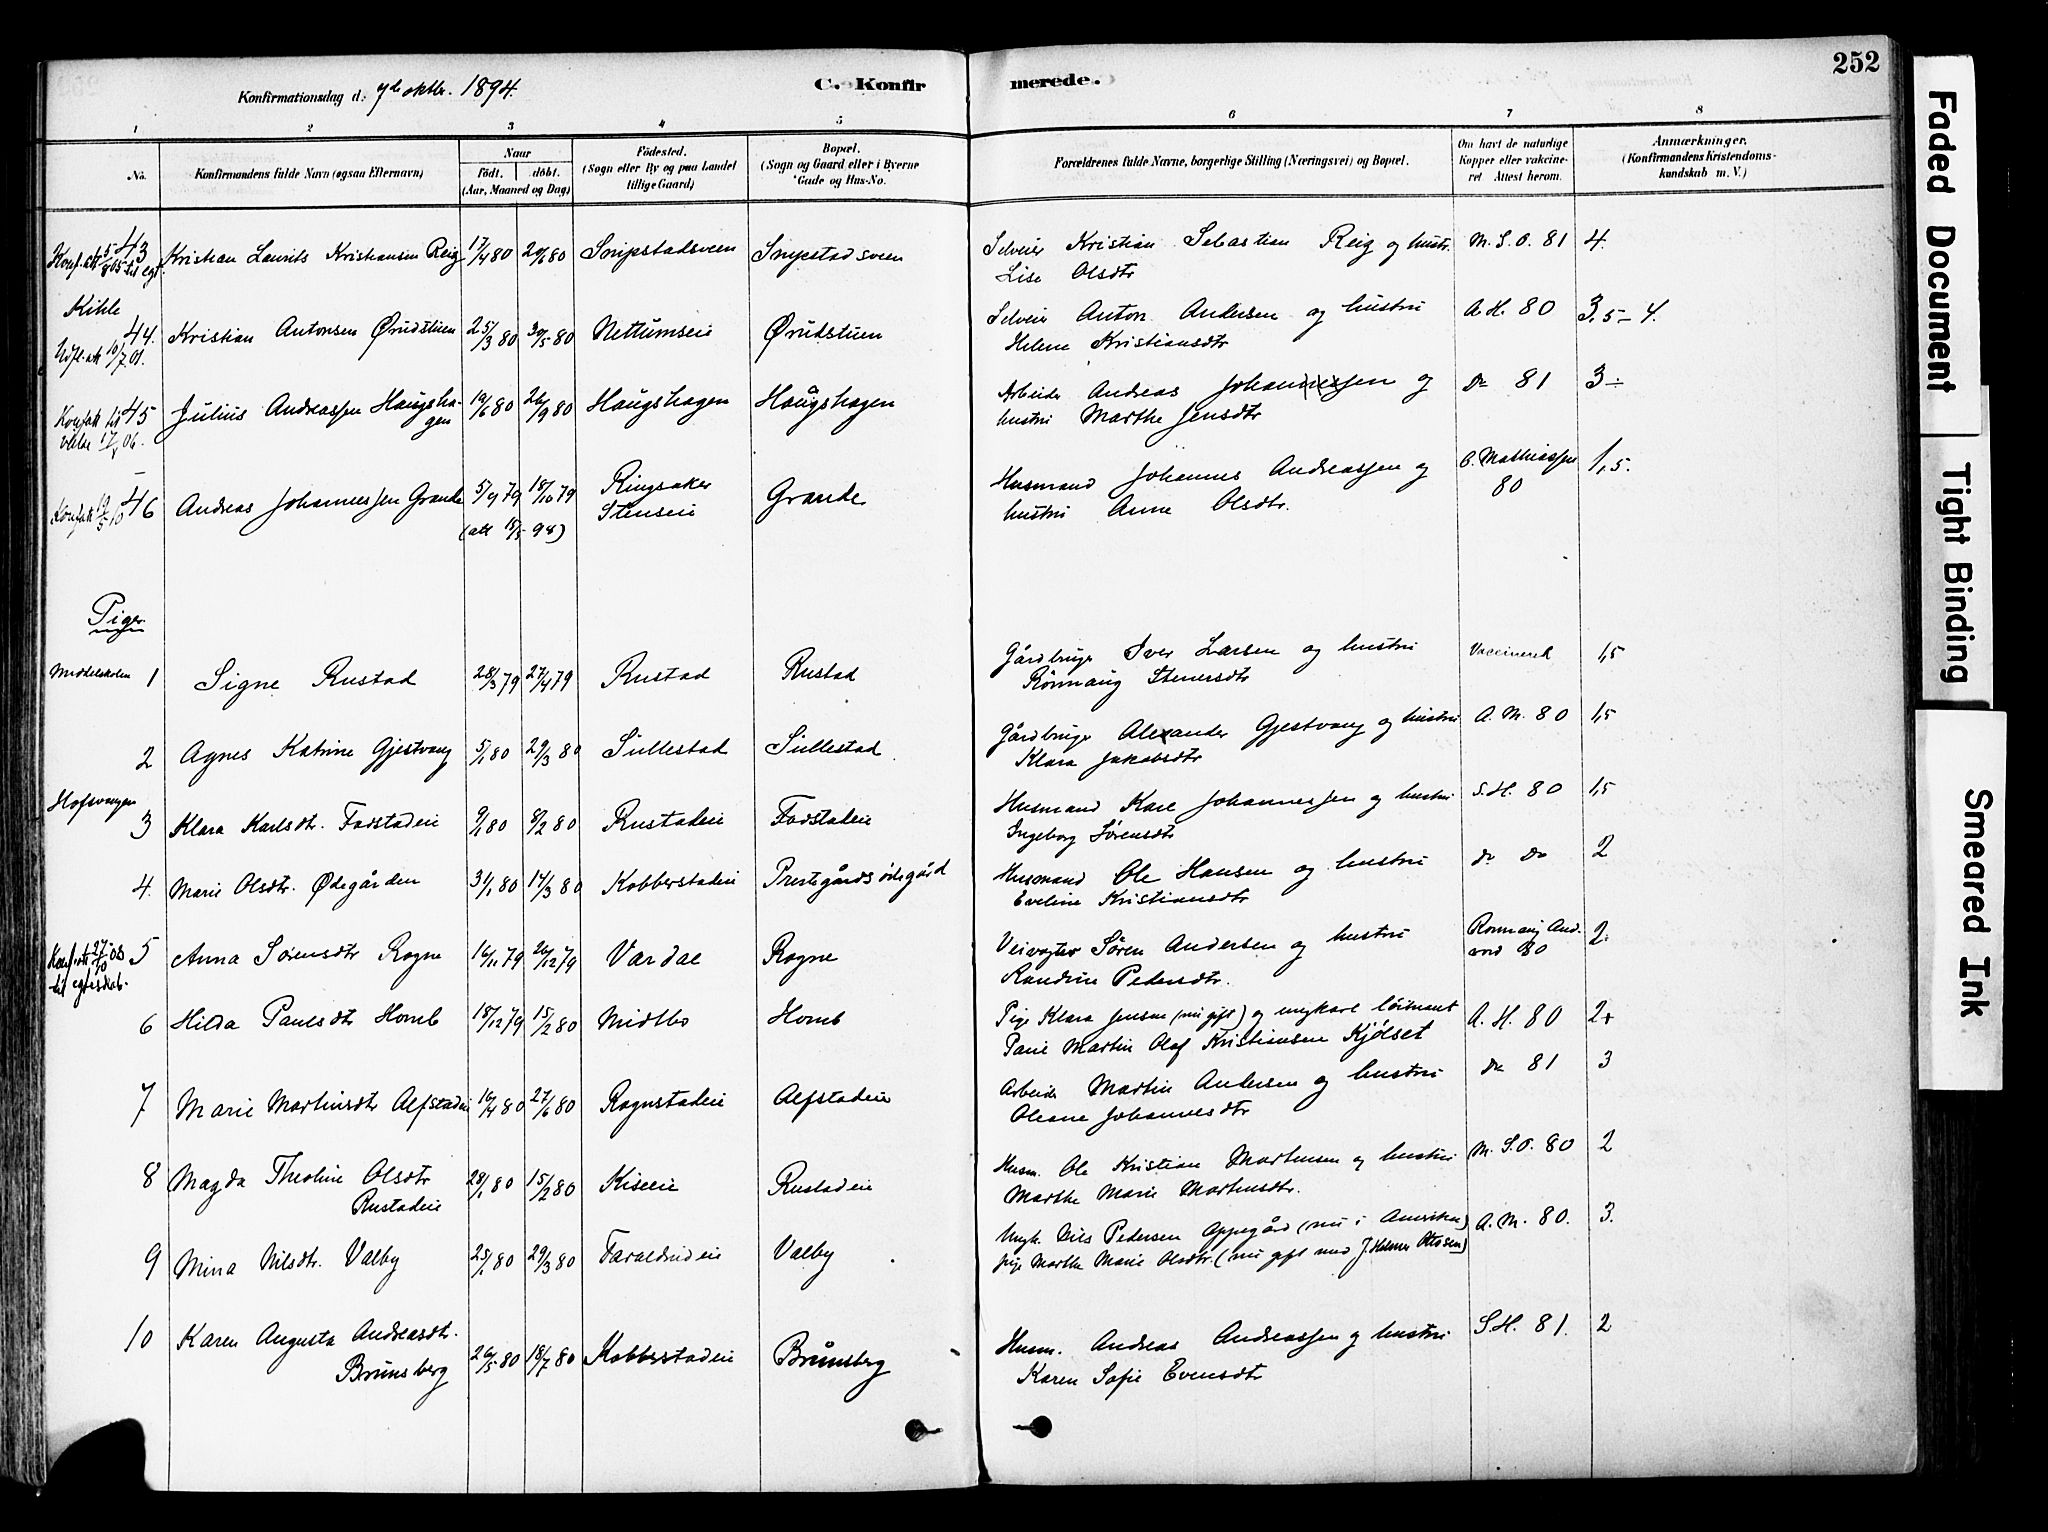 252
Konfirmationsdag d. 7de oktbr. 1894.
C. Konfirmerede.
1 2 3 4 5 6 7 8
No.
Konfirmandens fulde Navn (ogsaa Efternavn)
Naar
födt. döbt.
(Aar, Maaned og Dag)
Födested.
(Sogn eller By og paa Landet
tillige Gaard)
Bopæl.
(Sogn og Gaard eller i Byerne
Gade og Hus-No.
Forældrenes fulde Navne, borgerlige Stilling (Næringsvei) og Bopæl.
Om havt de naturlige
Kopper eller vaccine-
ret Attest herom.
Anmærkninger.
(Konfirmandens Kristendoms-
kundskab m. V.)
43 Kristian Laurits Kristiansen Reig 17/4 80 20/6 80 Snipstadsveen Snipstadsveen Selveier Kristian Sebastian Reig og hustr. M. S. O. 81 4.
Lise Olsdtr
Kihle
44. Kristian Antonsen Ørudstuen 25/3 80 30/5 80 Nettumseie Ørudstuen Selveier Anton Andersen og hustru A. H. 80 3,5-4.
Helene Kristiansdtr
45 Julius Andreassen Haugsha- 19/6 80 26/9 80 Haugshagen Haugshagen Arbeider Andreas Johannessen og Do 81 3-
gen
hustru Marthe Jensdtr
46 Andreas Johannessen Grande 5/9 79 18/10 79 Ringsaker Grande Husmand Johannes Andreassen og O. Mathiassen 1,5.
Stenseie
hustru Anne Olsdtr. 80
Piger
Middelskolen 1 Signe Rustad 28/3 79 27/4 79 Rustad Rustad Gårdbruger Iver Larsen og hustru Vaccineret 1,5
Rønnaug Stenersdtr
2 Agnes Katrine Gjestvang 5/1 80 29/3 80 Sullestad Sullestad Gårdbruger Alexander Gjestvang og hustru A. M. 80 1,5
Klara Jakobsdtr
Hofsvangen
3 Klara Karlsdtr. Fodstadeie 9/1 80 8/2 80 Rustadeie Fodstadeie Husmand Karl Johannessen og hustru S. H. 80 1,5
Ingeborg Sørensdtr
4. Marie Olsdtr. Ødegården 31/1 80 14/3 80 Kobberstadeie Prestegårdsødegård Husmand Ole Hansen og hustru do do 2
Eveline Kristiansdtr
til egteskab.
5 Anna Sørensdtr Rogne 16/11 79 26/12 79 Vardal Rogne Veivogter Søren Andersen og hustru 2.
80
Randine Pedersdtr.
6 Hilda Paulsdtr Homb 18/12 79 15/2 80 Midtbo Homb Pige Klara Jensen (nu gift) og ungkarl løitnant A. H. 80 2+
Paul Martin Olaf Kristiansen Kjølset
7 Marie Martinsdtr Alfstadeie 16/4 80 27/6 80 Rognstadeie Alfstadeie Arbeider Martin Andersen og hustru do 81 3
Oleane Johannesdtr
8 Magda Theoline Olsdtr 28/1 80 15/2 80 Kiseeie Rustadeie Husm. Ole Kristian Martinsen og hustru M. S. O. 80 2
Rustadeie
Marthe Marie Martinsdtr.
9 Mina Nilsdtr. Valby 25/1 80 29/3 80 Faraldrudeie Valby Ungk. Nils Pedersen Oppegård (nu i Amerika) A. M. 80. 3.
pige Marthe Marie Olsdtr. (nu gift med J. Helmer Ottosen)
10 Karen Augusta Andreasdtr. Brunsberg 26/5 80 18/7 80 Kobberstadeie Brunsberg Husm. Andreas Andreassen og hustru S. H. 81. 2
Karen Sofie Evensdtr
Faded Document
Tight Binding
Smeared Ink